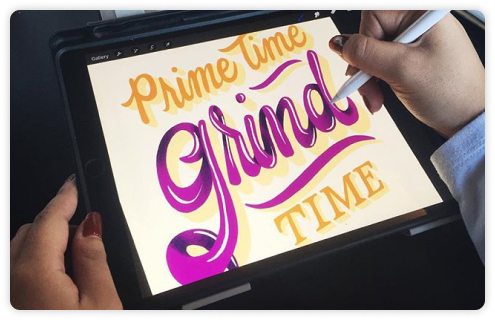 Gallery
Prime Time
grind
TIME